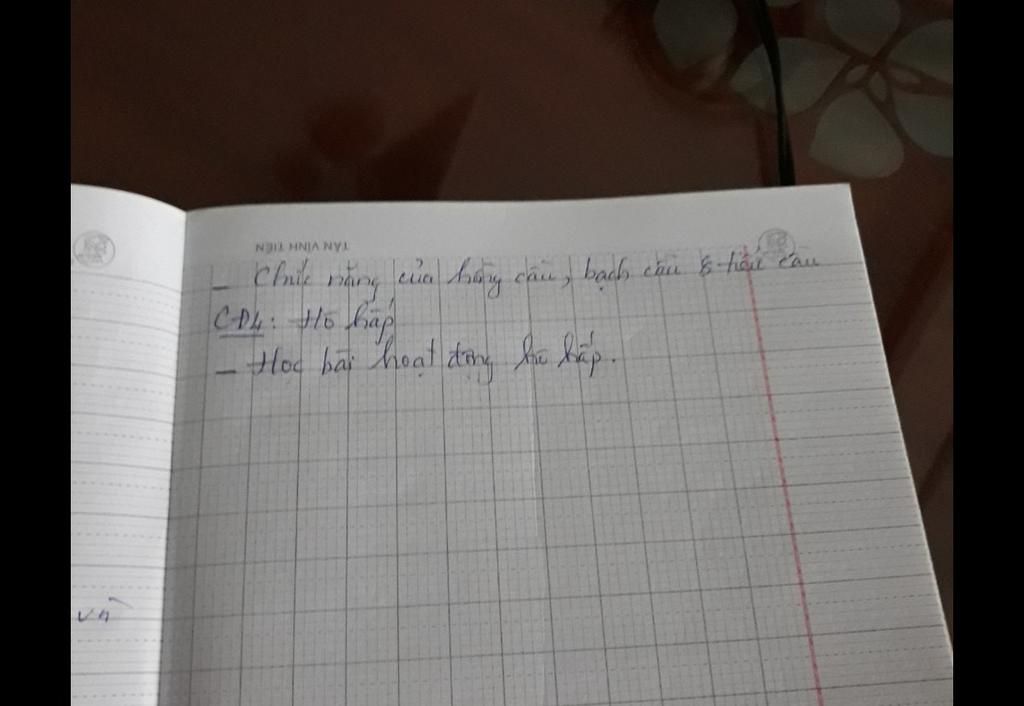 TÂN VĨNH TIẾN
- Chức năng của hồng cầu, bạch cầu & tiểu cầu
CĐ4: Hô hấp
- Học bài hoạt động hô hấp.
và